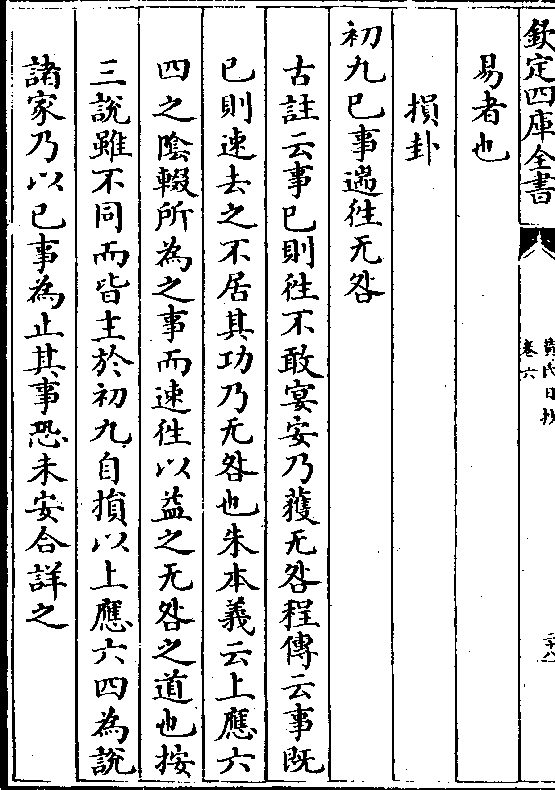 欽定四庫全書
黄氏日抄
卷六
易者也
損卦
初九已事遄徃无咎
古註云事已則徃不敢宴安乃獲无咎程傳云事既
已則速去之不居其功乃无咎也朱本義云上應六
四之陰輟所為之事而速徃以益之无咎之道也按
三說雖不同而皆主於初九自損以上應六四為說
諸家乃以已事為止其事恐未安合詳之